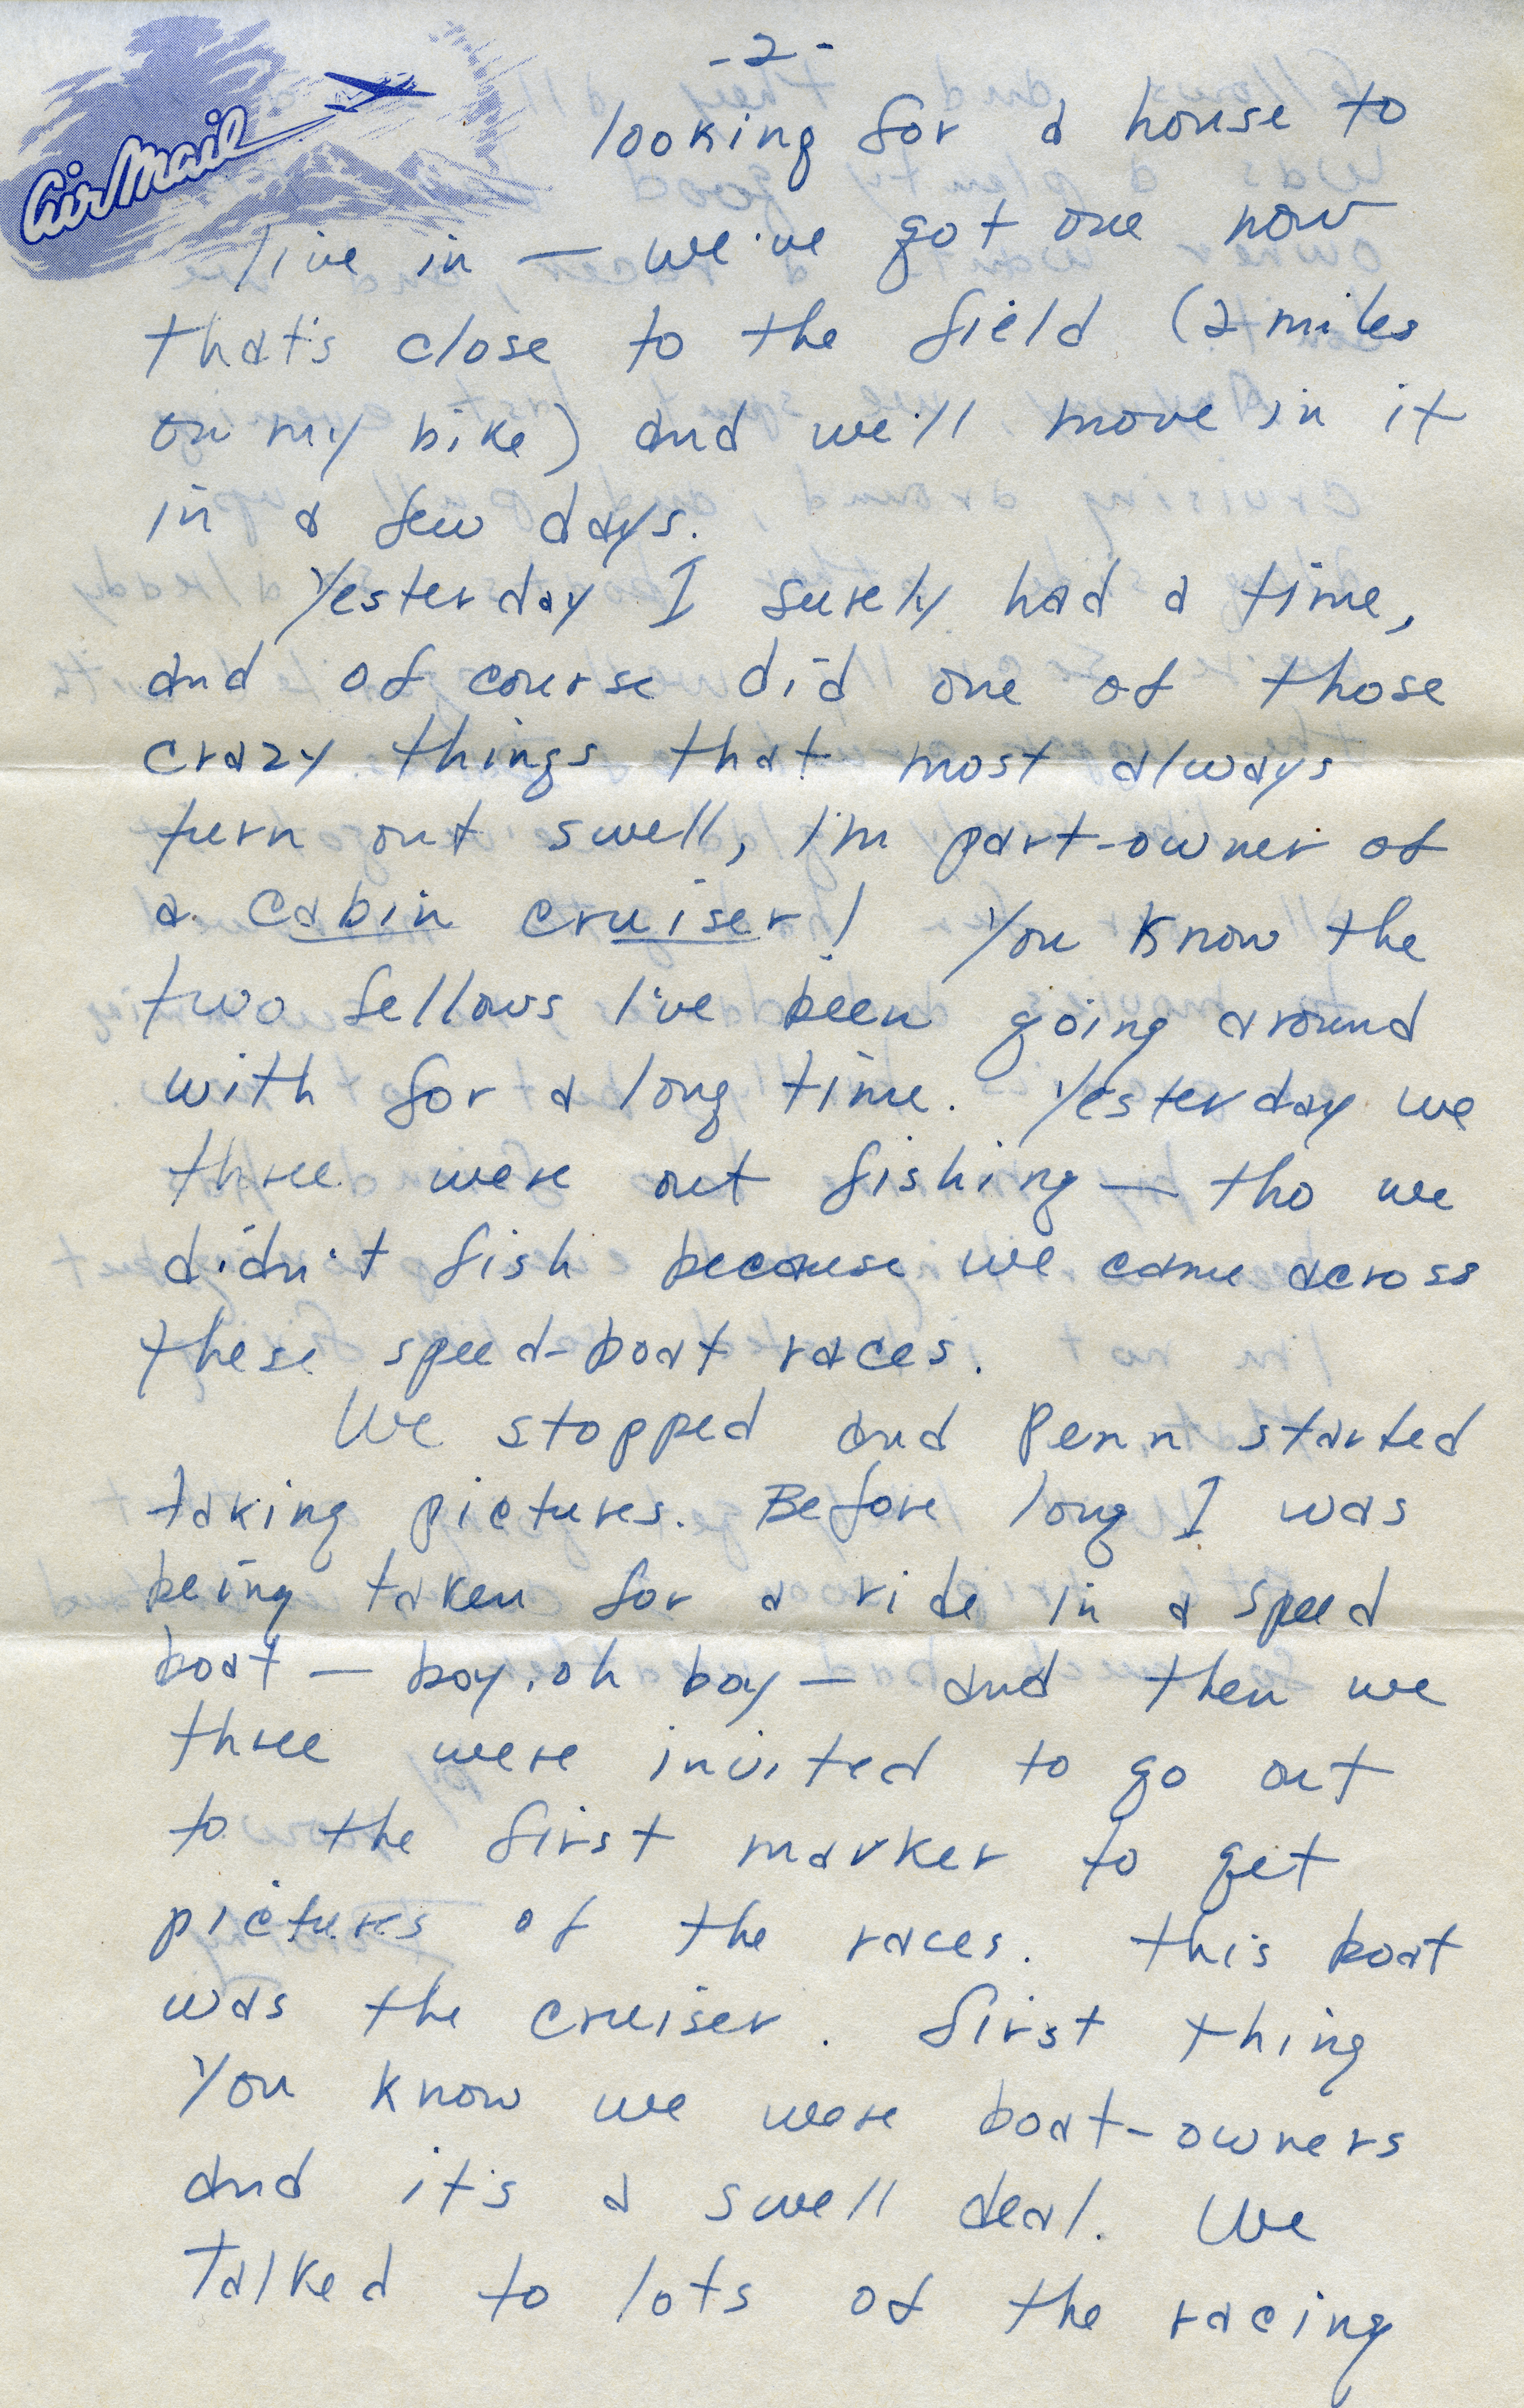 -2-
Air Mail
looking for a house to
live in — we've got one now
that's close to the field (2 miles
on my bike) and we'll move in it
in a few days.
Yesterday I surely had a time,
and of course did one of those
crazy things that most always
turn out swell, I'm part-owner of
a cabin cruiser! You know the
two fellows I've been going around
with for a long time. Yesterday we
three were out fishing — tho we
didn't fish because we came across
these speed-boat races.
We stopped and Penn started
taking pictures. Before long I was
being taken for a ride in a speed
boat — boy, oh boy — and then we
three were invited to go out
to the first marker to get
pictures of the races. This boat
was the cruiser. First thing
you know we were boat-owners
and it's a swell deal. We
talked to lots of the racing